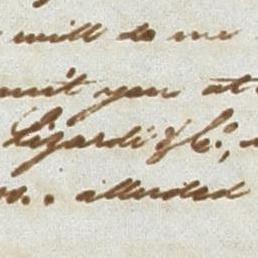 will do me
mit you at
Lizardi & Co.,
alluded